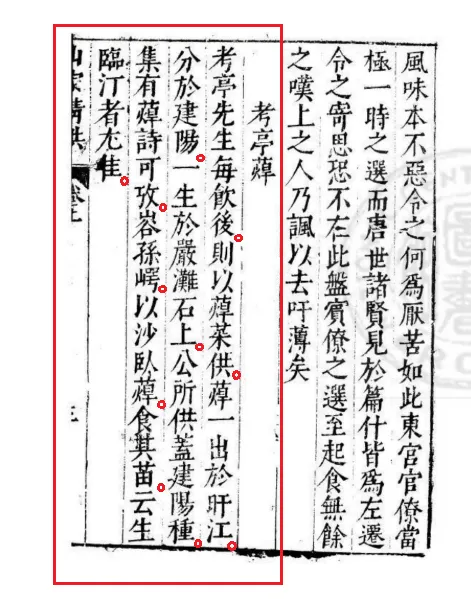 風味本不惡令之何為厭苦如此東宮官僚當
極一時之選而唐世諸賢見於篇什皆為左遷
令之寄思恐不在此盤賓僚之選至起食無餘
之嘆上之人乃諷以去吁薄矣
考亭蔊
考亭先生每飲後則以蔊菜供蔊一出於旴江
分於建陽一生於嚴灘石上公所供蓋建陽種
集有蔊詩可攷峉孫崿以沙臥蔊食其苗云生
臨汀者尤佳
山家清供